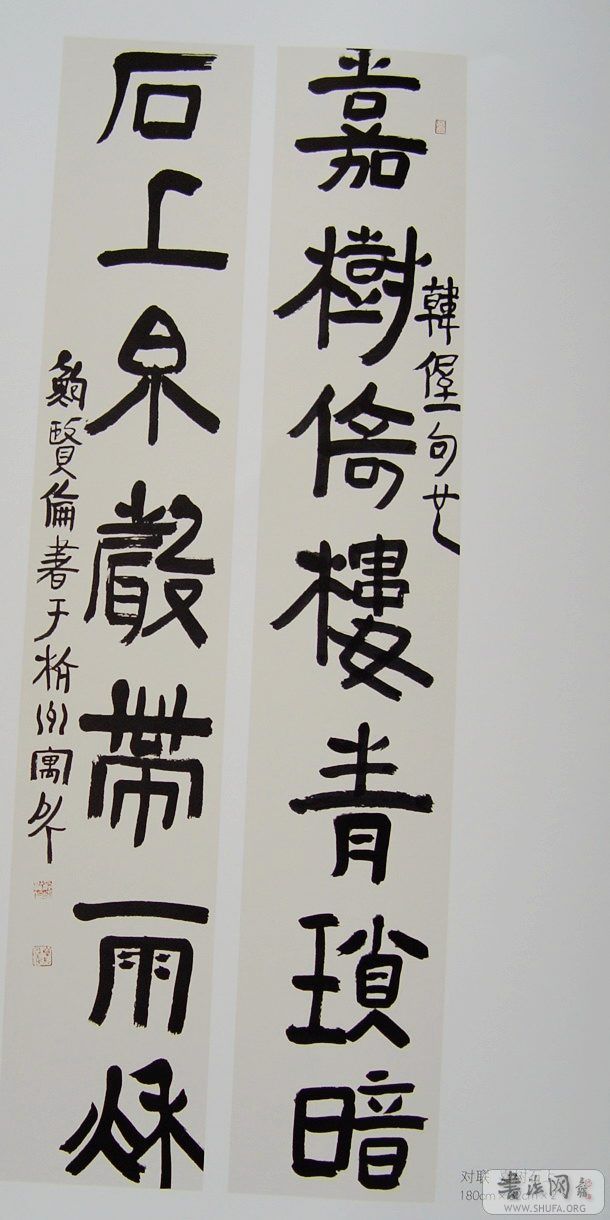 嘉樹倚樓青瑣暗
韓偓句也
石上泉聲帶雨秌
鮑賢倫書于杭州寓所
对联
180cm
書法网
WWW.SHUFA.ORG